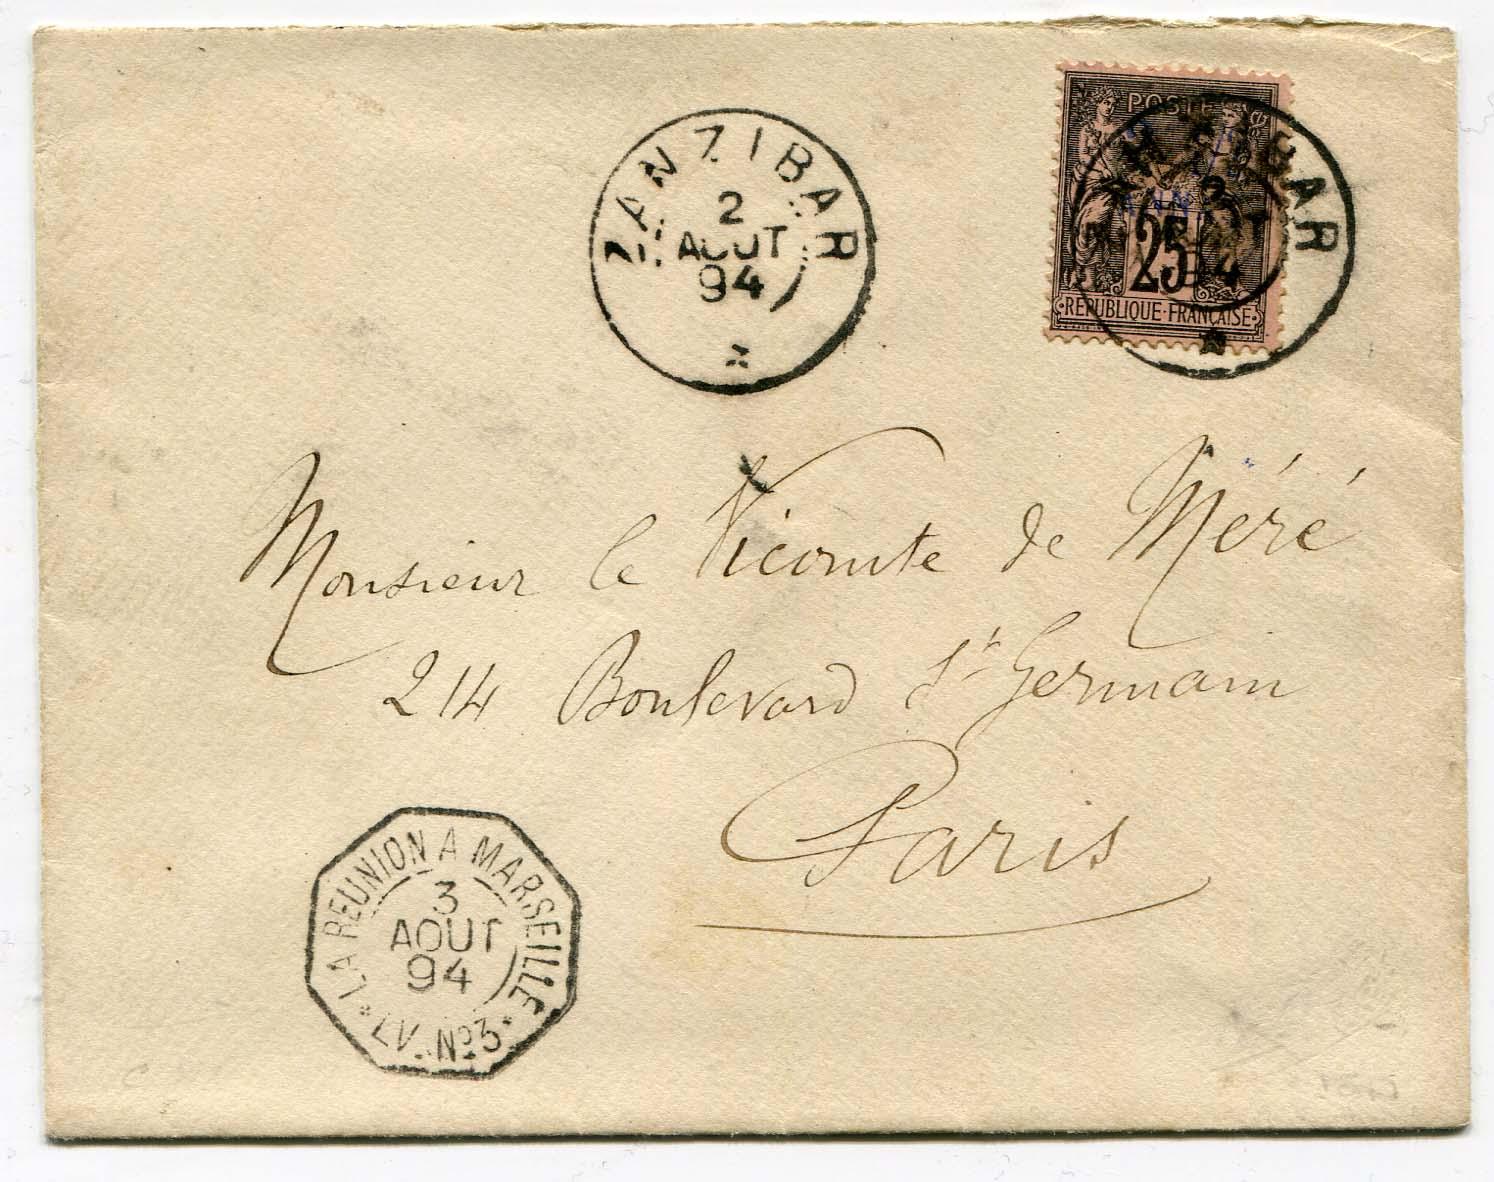 ZANZIBAR
2
AOUT
94
POSTE
25
REPUBLIQUE · FRANÇAISE
Monsieur le Vicomte de Méré
214 Boulevard St Germain
Paris
LA REUNION A MARSEILLE
3
AOUT
94
* LV. No 3 *